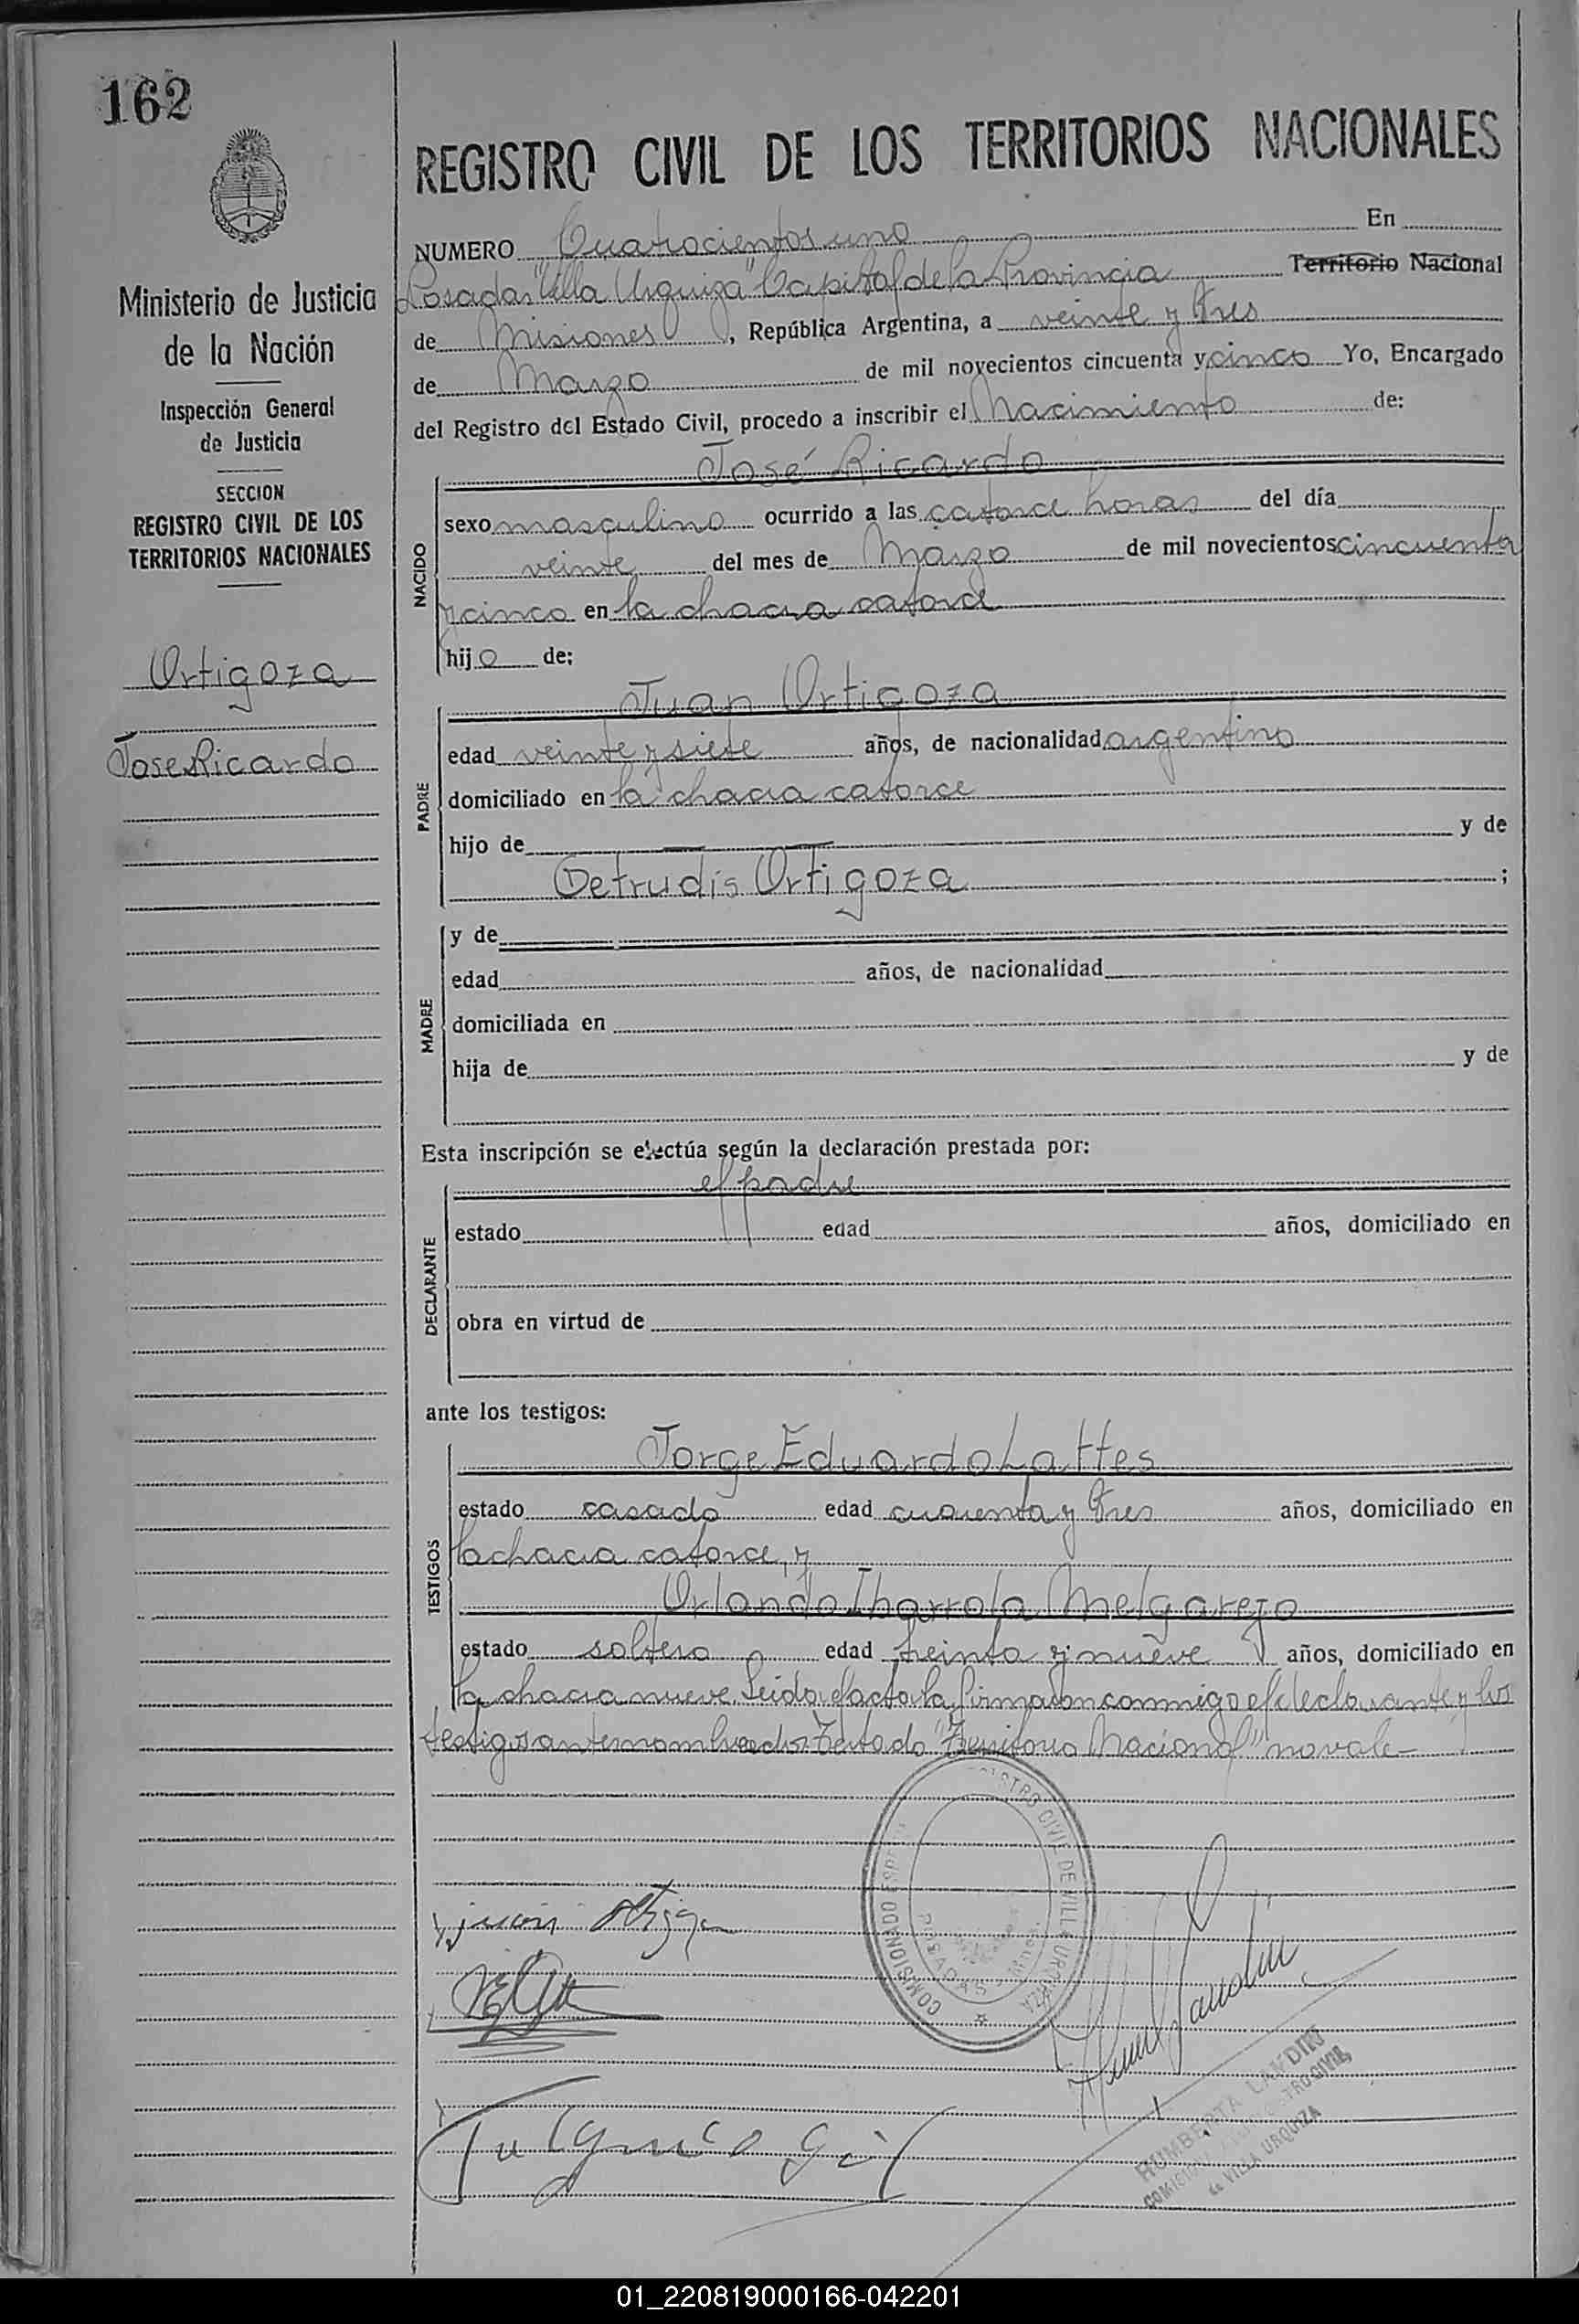 162
Ministerio de Justicia
de la Nación
Inspección General
de Justicia
SECCION
REGISTRO CIVIL DE LOS
TERRITORIOS NACIONALES
Ortigoza
José Ricardo
REGISTRO CIVIL DE LOS TERRITORIOS NACIONALES
NUMERO Cuatrocientos uno En
Posadas "Villa Urquiza" Capital de la Provincia Territorio Nacional
de Misiones, República Argentina, a veinte y tres
de Marzo de mil novecientos cincuenta y cinco Yo, Encargado
del Registro del Estado Civil, procedo a inscribir el Nacimiento de:
José Ricardo
NACIDO
sexo masculino ocurrido a las catorce horas del día
veinte del mes de Marzo de mil novecientos cincuenta
y cinco en la chacra catorce
hijo de:
Juan Ortigoza
PADRE
edad veinte y siete años, de nacionalidad argentino
domiciliado en la chacra catorce
hijo de y de
Getrudis Ortigoza ;
MADRE
y de
edad años, de nacionalidad
domiciliada en
hija de y de
Esta inscripción se efectúa según la declaración prestada por:
el padre
DECLARANTE
estado edad años, domiciliado en
obra en virtud de
ante los testigos:
Jorge Eduardo Lattes
TESTIGOS
estado casado edad cuarenta y tres años, domiciliado en
la chacra catorce, y
Orlando Ibarrola Melgarejo
estado soltero edad treinta y nueve años, domiciliado en
la chacra nueve. Leida el acta la firmaron conmigo el declarante y los
testigos anternombrados. Testado "Territorio Nacional" no vale-
REGISTRO CIVIL DE VILLA URQUIZA
COMISIONADO
POSADAS
juan
HUMBERTA LANDIRI
VILLA URQUIZA
01_220819000166-042201